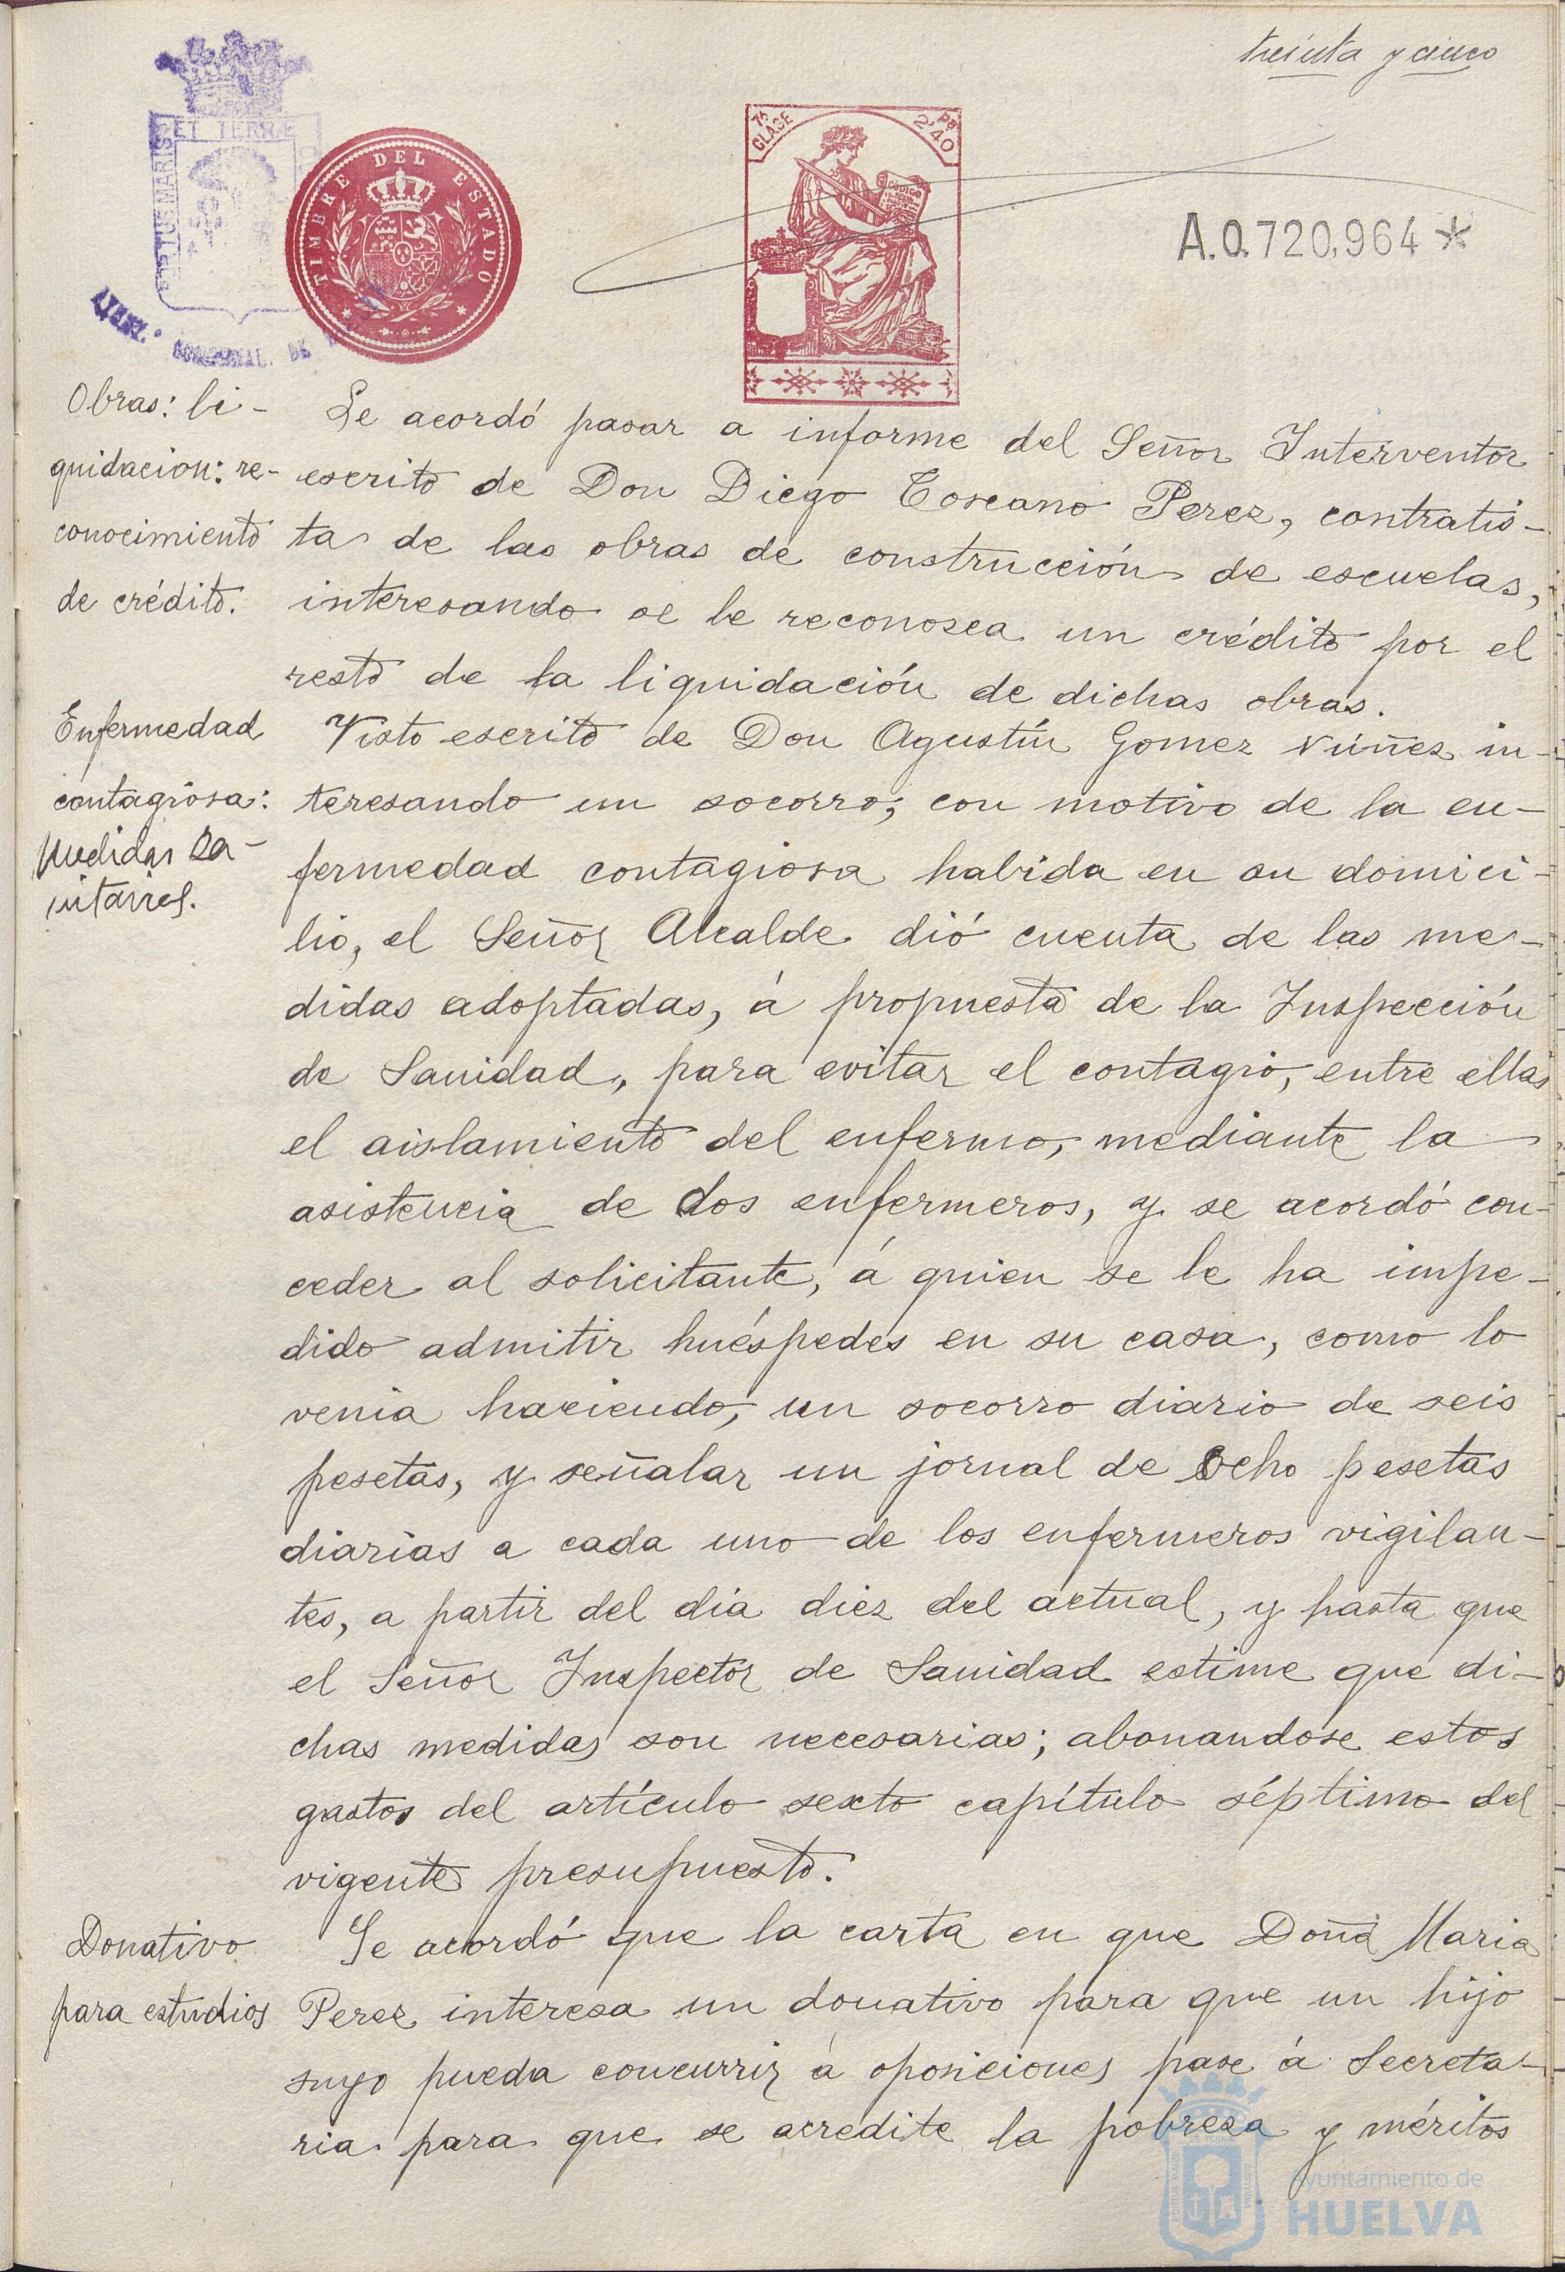 treinta y cinco
ET TERRÆ
TIMBRE DEL ESTADO
7ª CLASE
2'40 Ps
CODIGO
A.0.720,964 *
Obras: li-
quidacion: re-
conocimiento
de crédito.
Se acordó pasar a informe del Señor Interventor
escrito de Don Diego Toscano Perez, contratis-
ta de las obras de construcción de escuelas,
interesando se le reconosca un crédito por el
resto de la liquidación de dichas obras.
Enfermedad
contagiosa:
Medidas sa-
nitarias.
Visto escrito de Don Agustín Gomez Núñez in-
teresando un socorro, con motivo de la en-
fermedad contagiosa habida en su domici-
lio, el Señor Alcalde dió cuenta de las me-
didas adoptadas, á propuesta de la Inspección
de Sanidad, para evitar el contagio, entre ellas
el aislamiento del enfermo, mediante la
asistencia de dos enfermeros, y se acordó con-
ceder al solicitante, á quien se le ha impe-
dido admitir huéspedes en su casa, como lo
venia haciendo, un socorro diario de seis
pesetas, y señalar un jornal de ocho pesetas
diarias a cada uno de los enfermeros vigilan-
tes, a partir del dia diez del actual, y hasta que
el Señor Inspector de Sanidad estime que di-
chas medidas son necesarias; abonandose estos
gastos del artículo sexto capítulo séptimo del
vigente presupuesto.
Donativo
para estudios
Se acordó que la carta en que Doña Maria
Perez interesa un donativo para que un hijo
suyo pueda concurrir á oposiciones pase á Secreta-
ria para que se acredite la pobresa y méritos
Ayuntamiento de
HUELVA